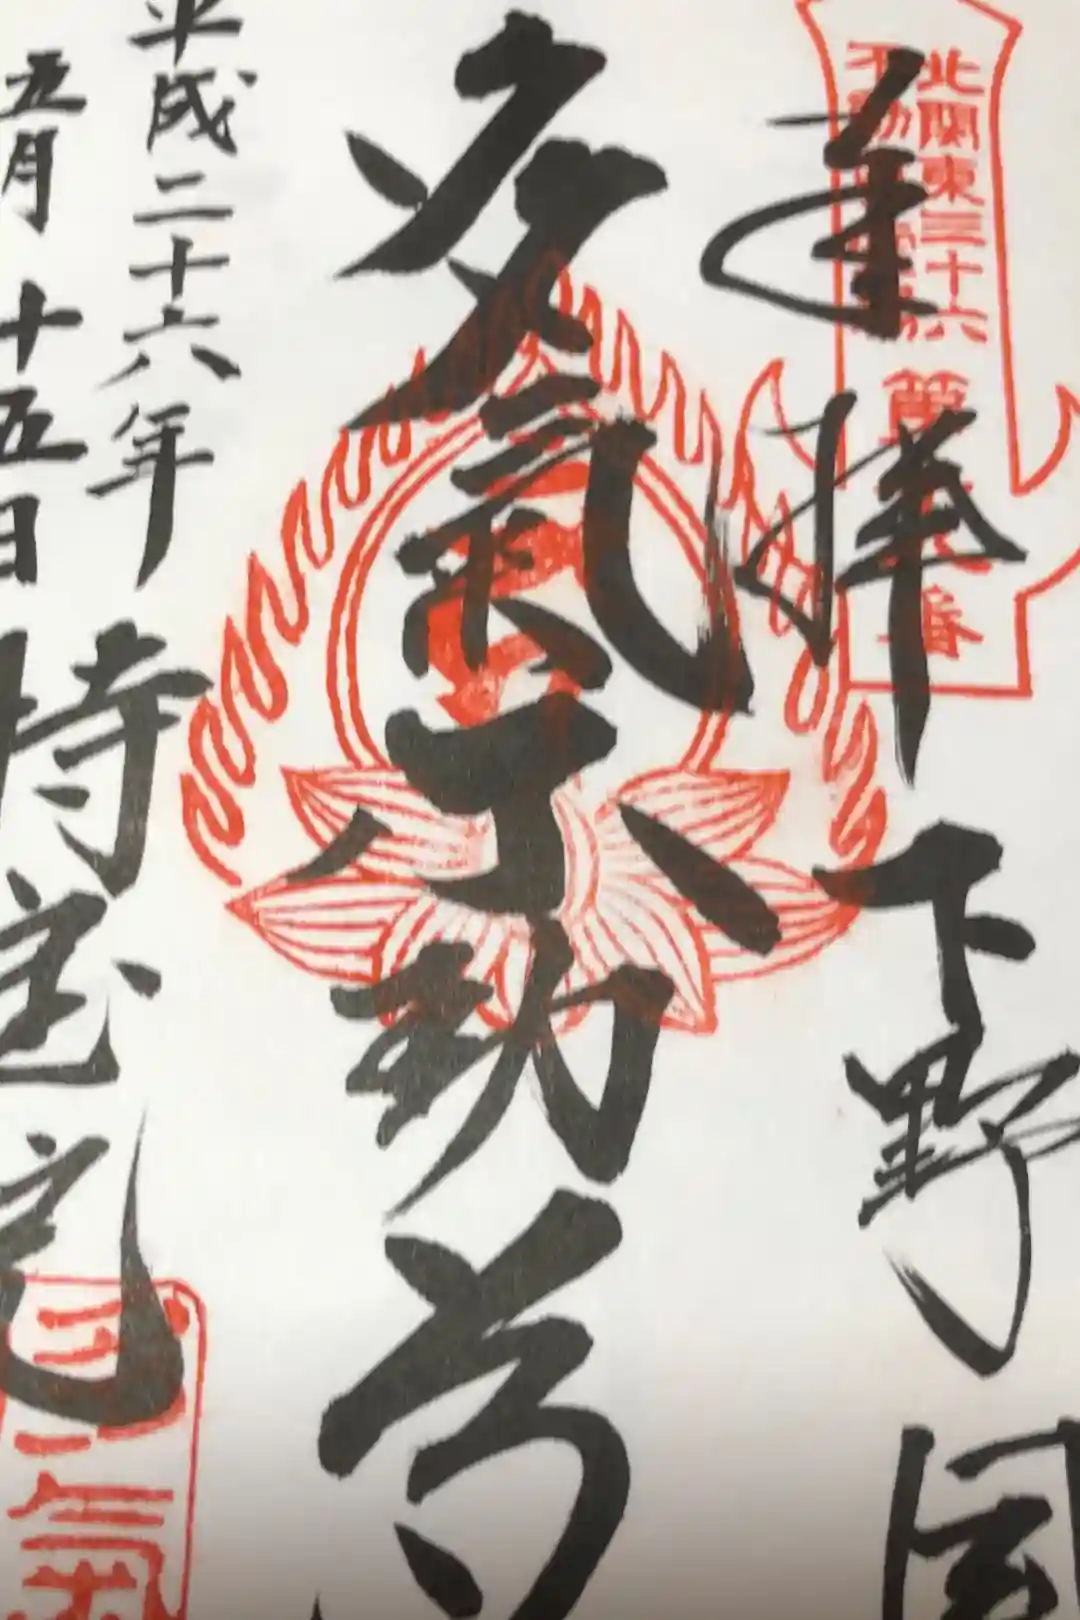 奉拝 下野国
北関東三十六
不動
第
番
多氣不動尊
平成二十六年
五月十五日
持宝院
氣